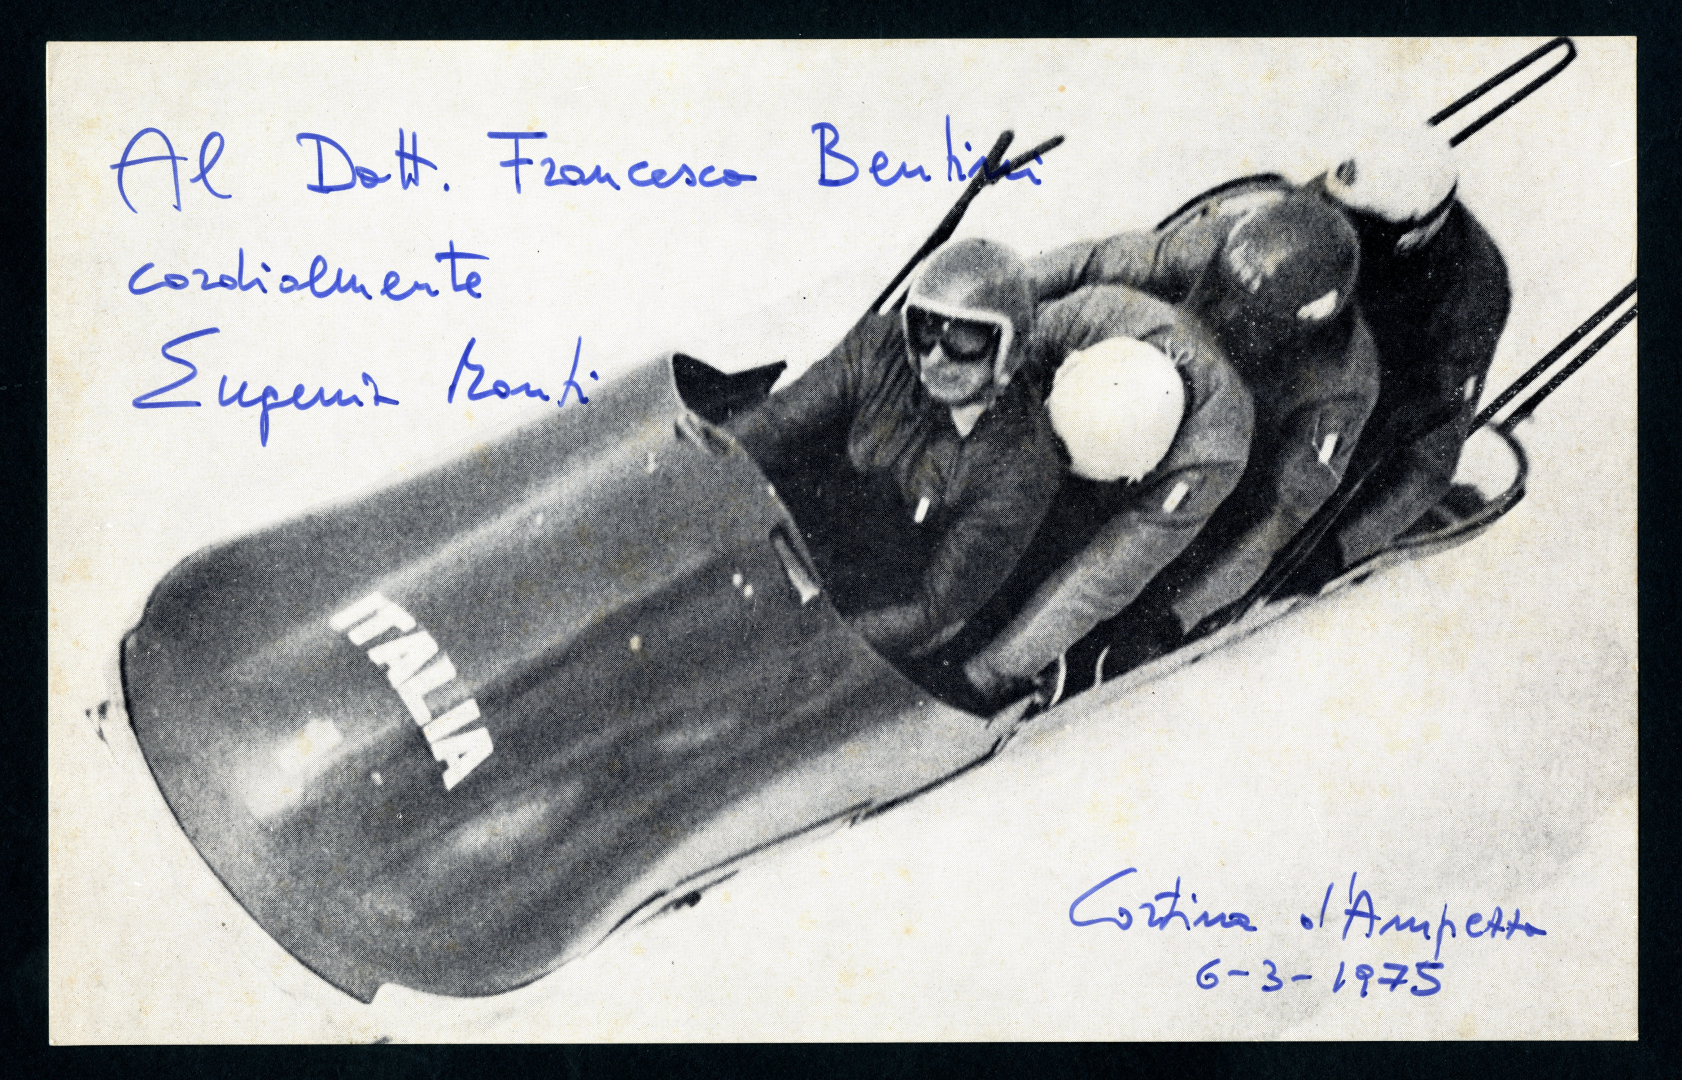 Al Dott. Francesco Bentini
cordialmente
Eugenio Monti
ITALIA
Cortina d'Ampezzo
6-3-1975